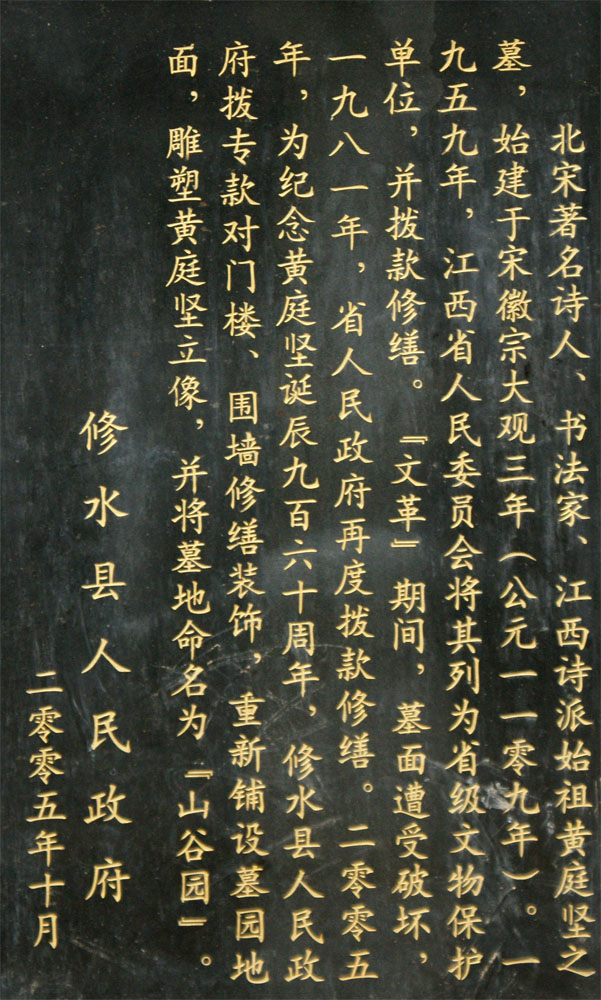 北宋著名诗人、书法家、江西诗派始祖黄庭坚之
墓，始建于宋徽宗大观三年（公元一一零九年）。一
九五九年，江西省人民委员会将其列为省级文物保护
单位，并拨款修缮。『文革』期间，墓面遭受破坏，
一九八一年，省人民政府再度拨款修缮。二零零五
年，为纪念黄庭坚诞辰九百六十周年，修水县人民政
府拨专款对门楼、围墙修缮装饰，重新铺设墓园地
面，雕塑黄庭坚立像，并将墓地命名为『山谷园』。
修水县人民政府
二零零五年十月